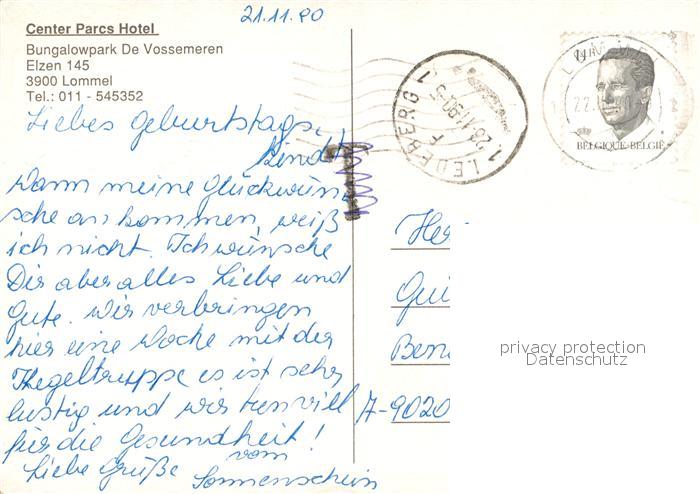 21.11.90
Center Parcs Hotel
Bungalowpark De Vossemeren
Elzen 145
3900 Lommel
Tel.: 011 - 545352
Liebes Geburtstags,
Kind!
Wann meine Glückwün
sche an kommen, weiß
ich nicht. Ich wünsche
Dir aber alles Liebe und
Gute. Wir verbringen
hier eine Woche mit der
Kegeltruppe es ist sehr
lustig und wir tun viell
für die Gesundheit!
Liebe Grüße vom
Sonnenschein
1 LEDEBERG 1
26 11 90
BELGIQUE·BELGIË
T
Her
Gui
Ben
A-9020
privacy protection
Datenschutz